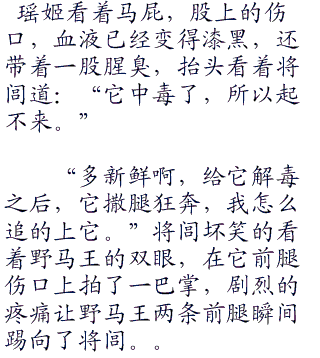 瑶姬看着马屁，股上的伤
口，血液已经变得漆黑，还
带着一股腥臭，抬头看着将
闾道：“它中毒了，所以起
不来。”
“多新鲜啊，给它解毒
之后，它撒腿狂奔，我怎么
追的上它。”将闾坏笑的看
着野马王的双眼，在它前腿
伤口上拍了一巴掌，剧烈的
疼痛让野马王两条前腿瞬间
踢向了将闾。。